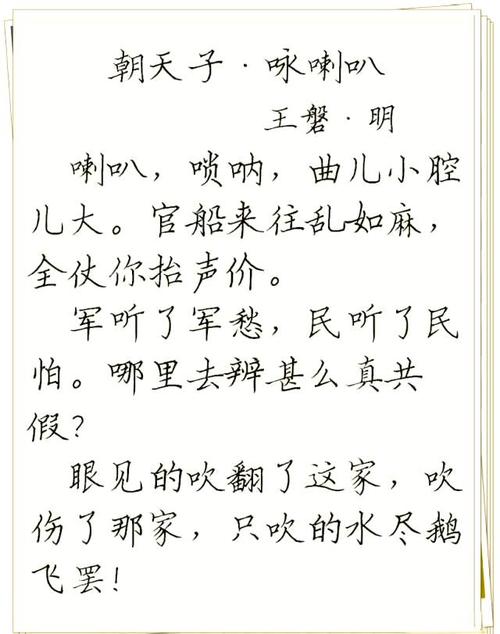 朝天子·咏喇叭
王磐·明
喇叭，唢呐，曲儿小腔
儿大。官船来往乱如麻，
全仗你抬声价。
军听了军愁，民听了民
怕。哪里去辨甚么真共
假？
眼见的吹翻了这家，吹
伤了那家，只吹的水尽鹅
飞罢！